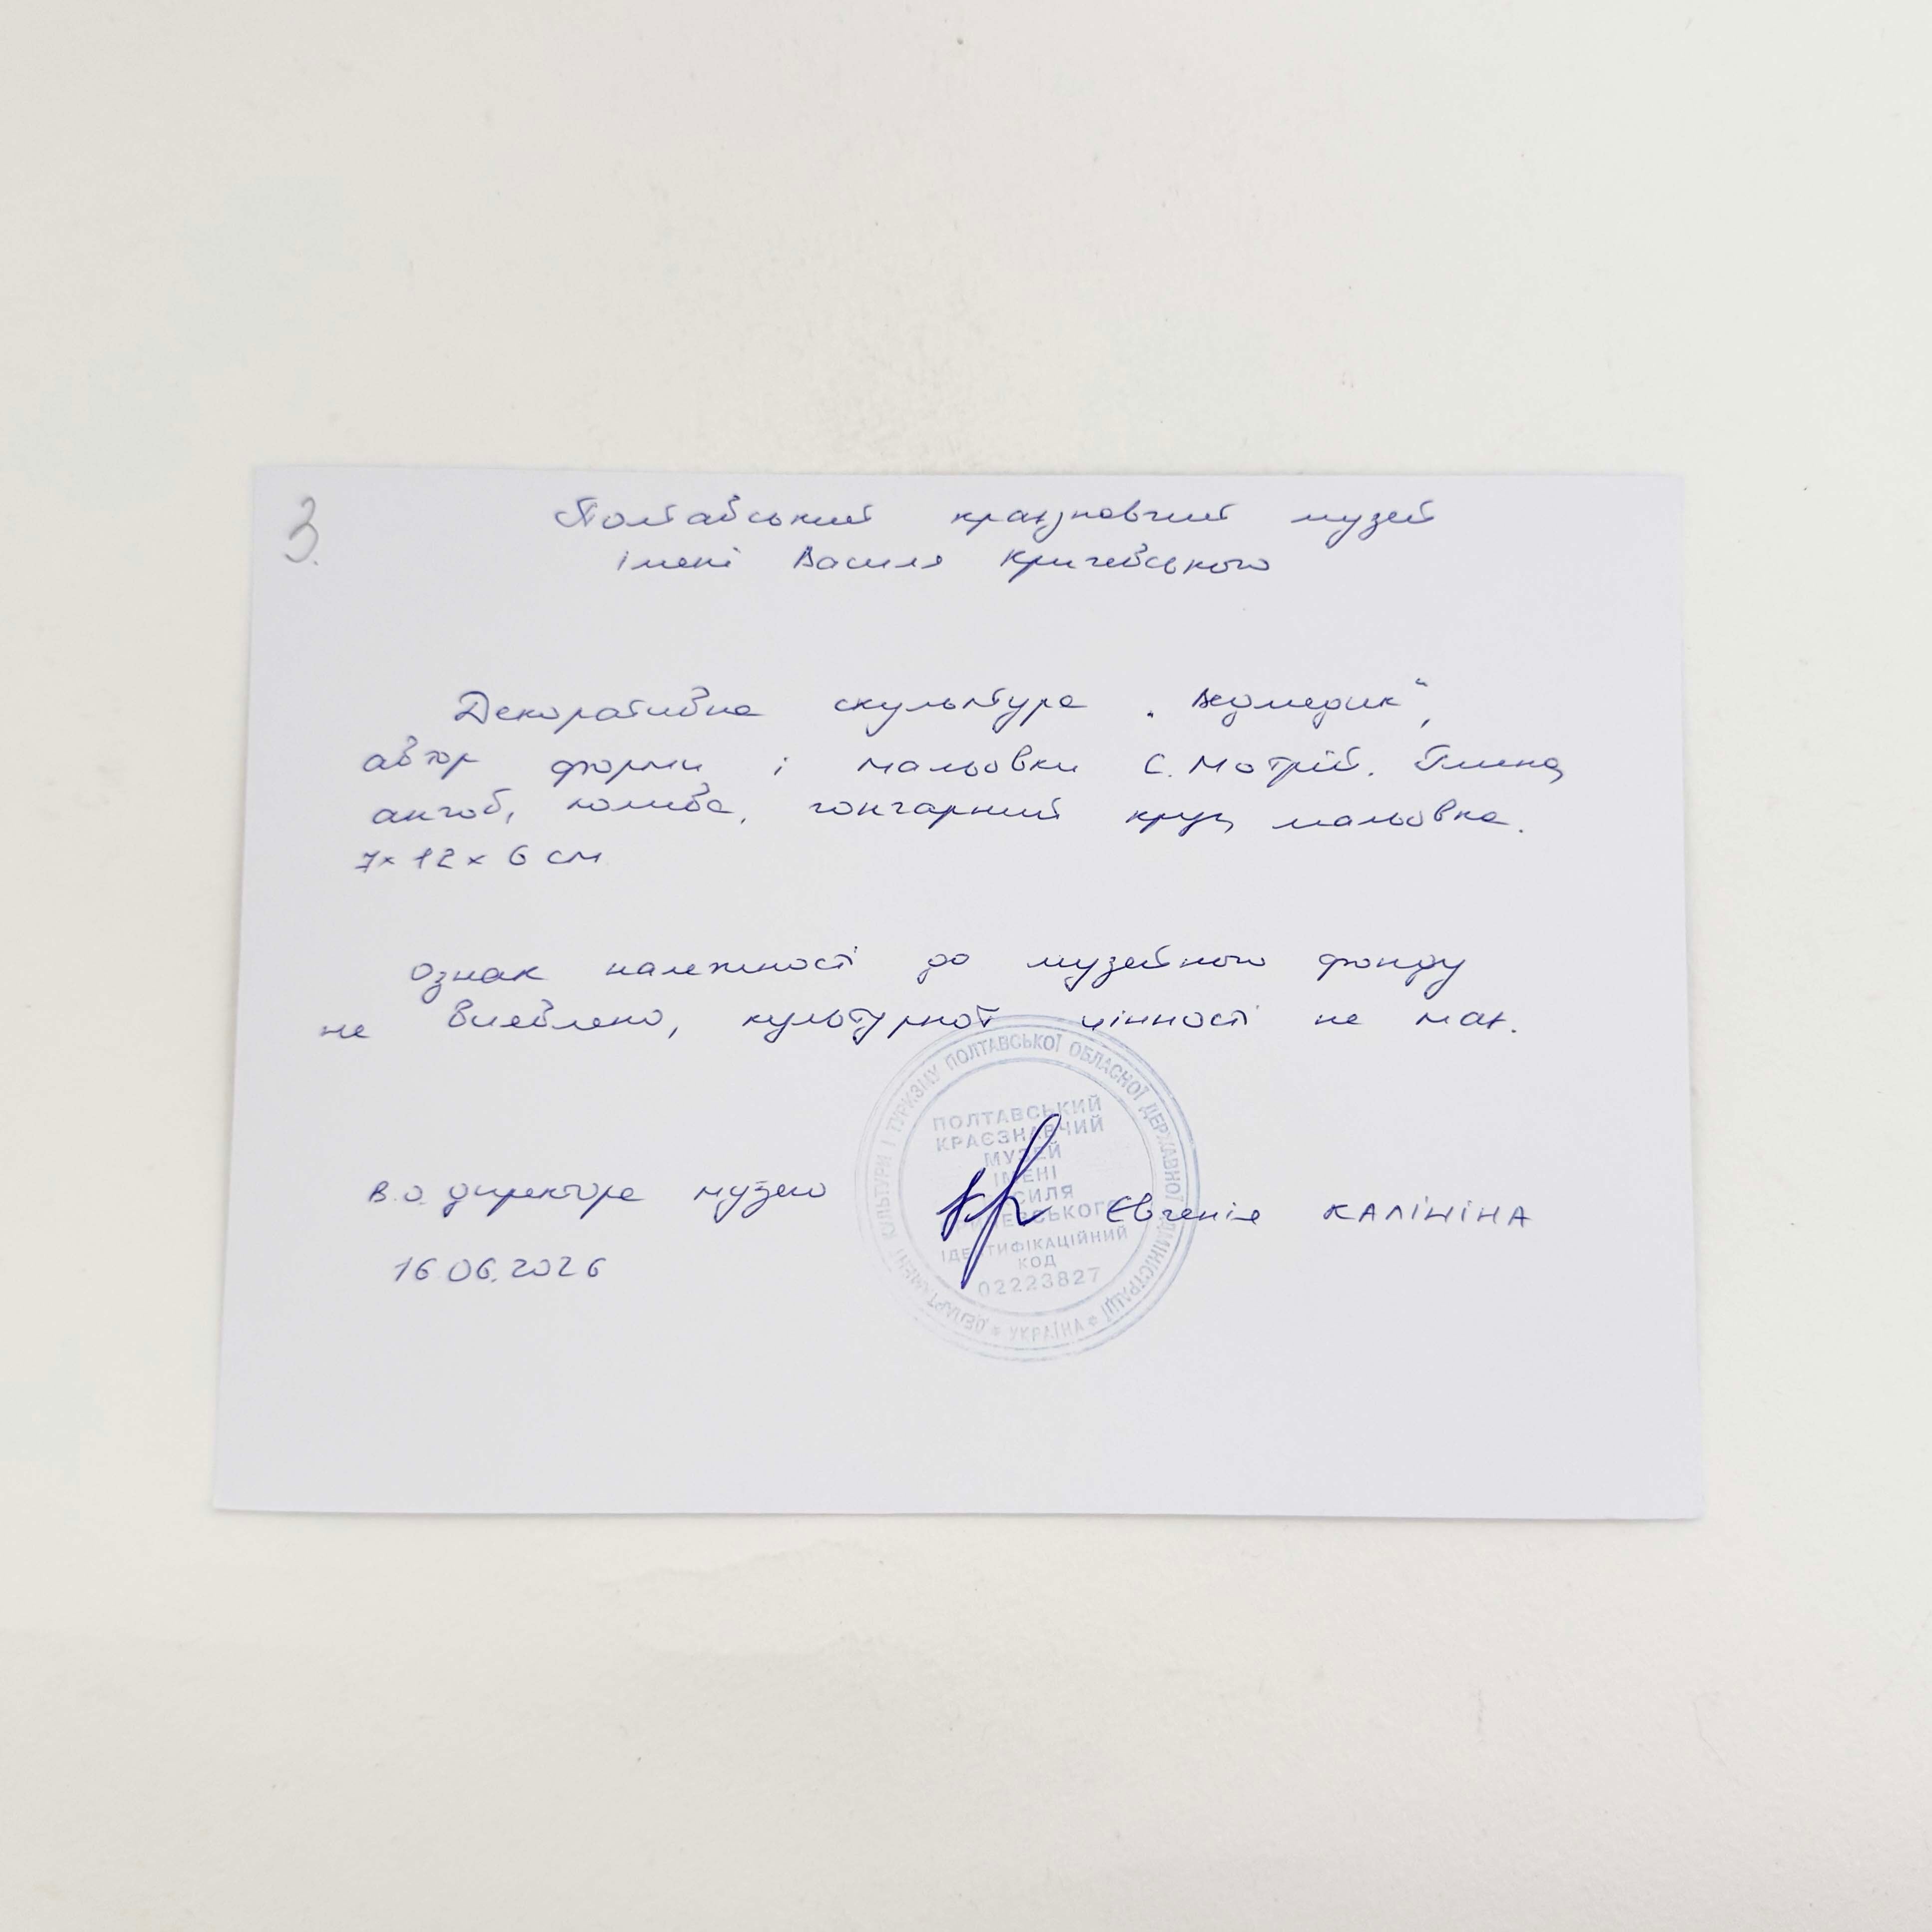 3.
Полтавський краєзнавчий музей
імені Василя Кричевського
Декоративна скульптура „Ведмедик“,
автор форми і мальовки С. Мотрій. Глина,
ангоб, полива, гончарний круг, мальовка.
7 × 12 × 6 см
Ознак належності до музейного фонду
не виявлено, культурної цінності не має.
В.о. директора музею Євгенія КАЛІНІНА
16.06.2026
ДЕПАРТАМЕНТ КУЛЬТУРИ І ТУРИЗМУ ПОЛТАВСЬКОЇ ОБЛАСНОЇ ДЕРЖАВНОЇ АДМІНІСТРАЦІЇ * УКРАЇНА *
ПОЛТАВСЬКИЙ
КРАЄЗНАВЧИЙ
МУЗЕЙ
ІМЕНІ
ВАСИЛЯ
КРИЧЕВСЬКОГО
ІДЕНТИФІКАЦІЙНИЙ
КОД
02223827